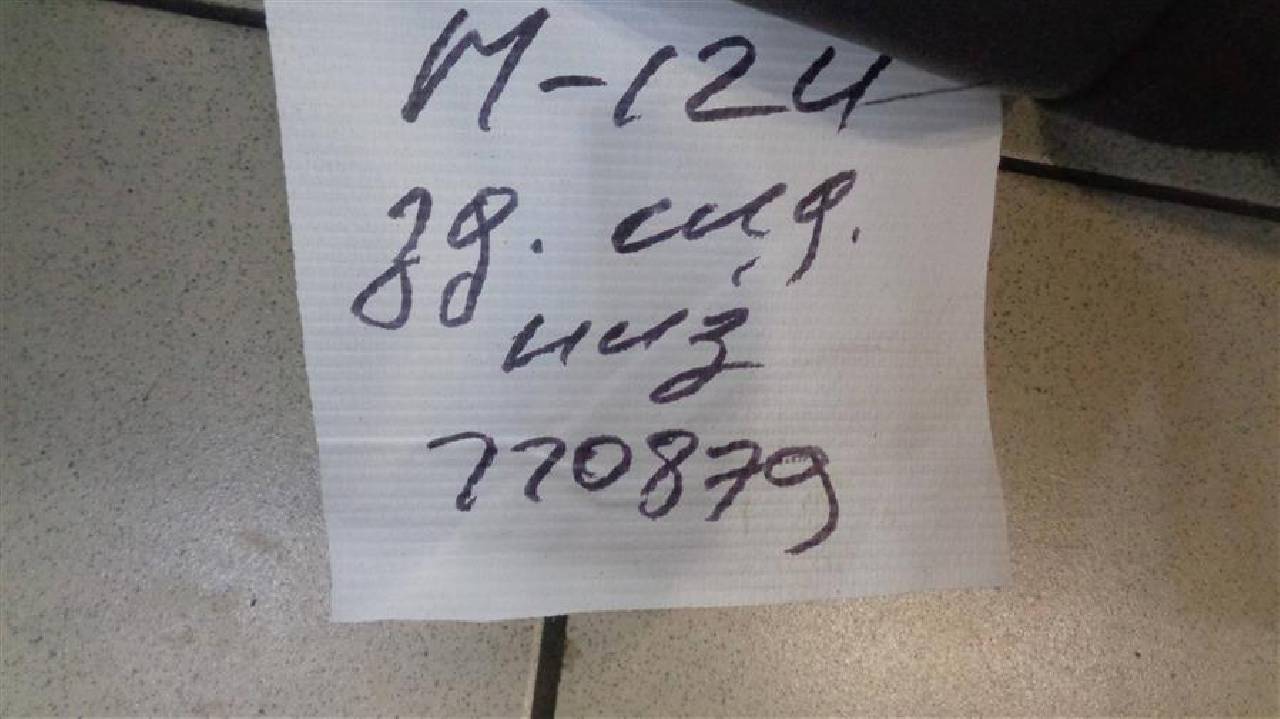 М-124
зд. сид.
низ
770879